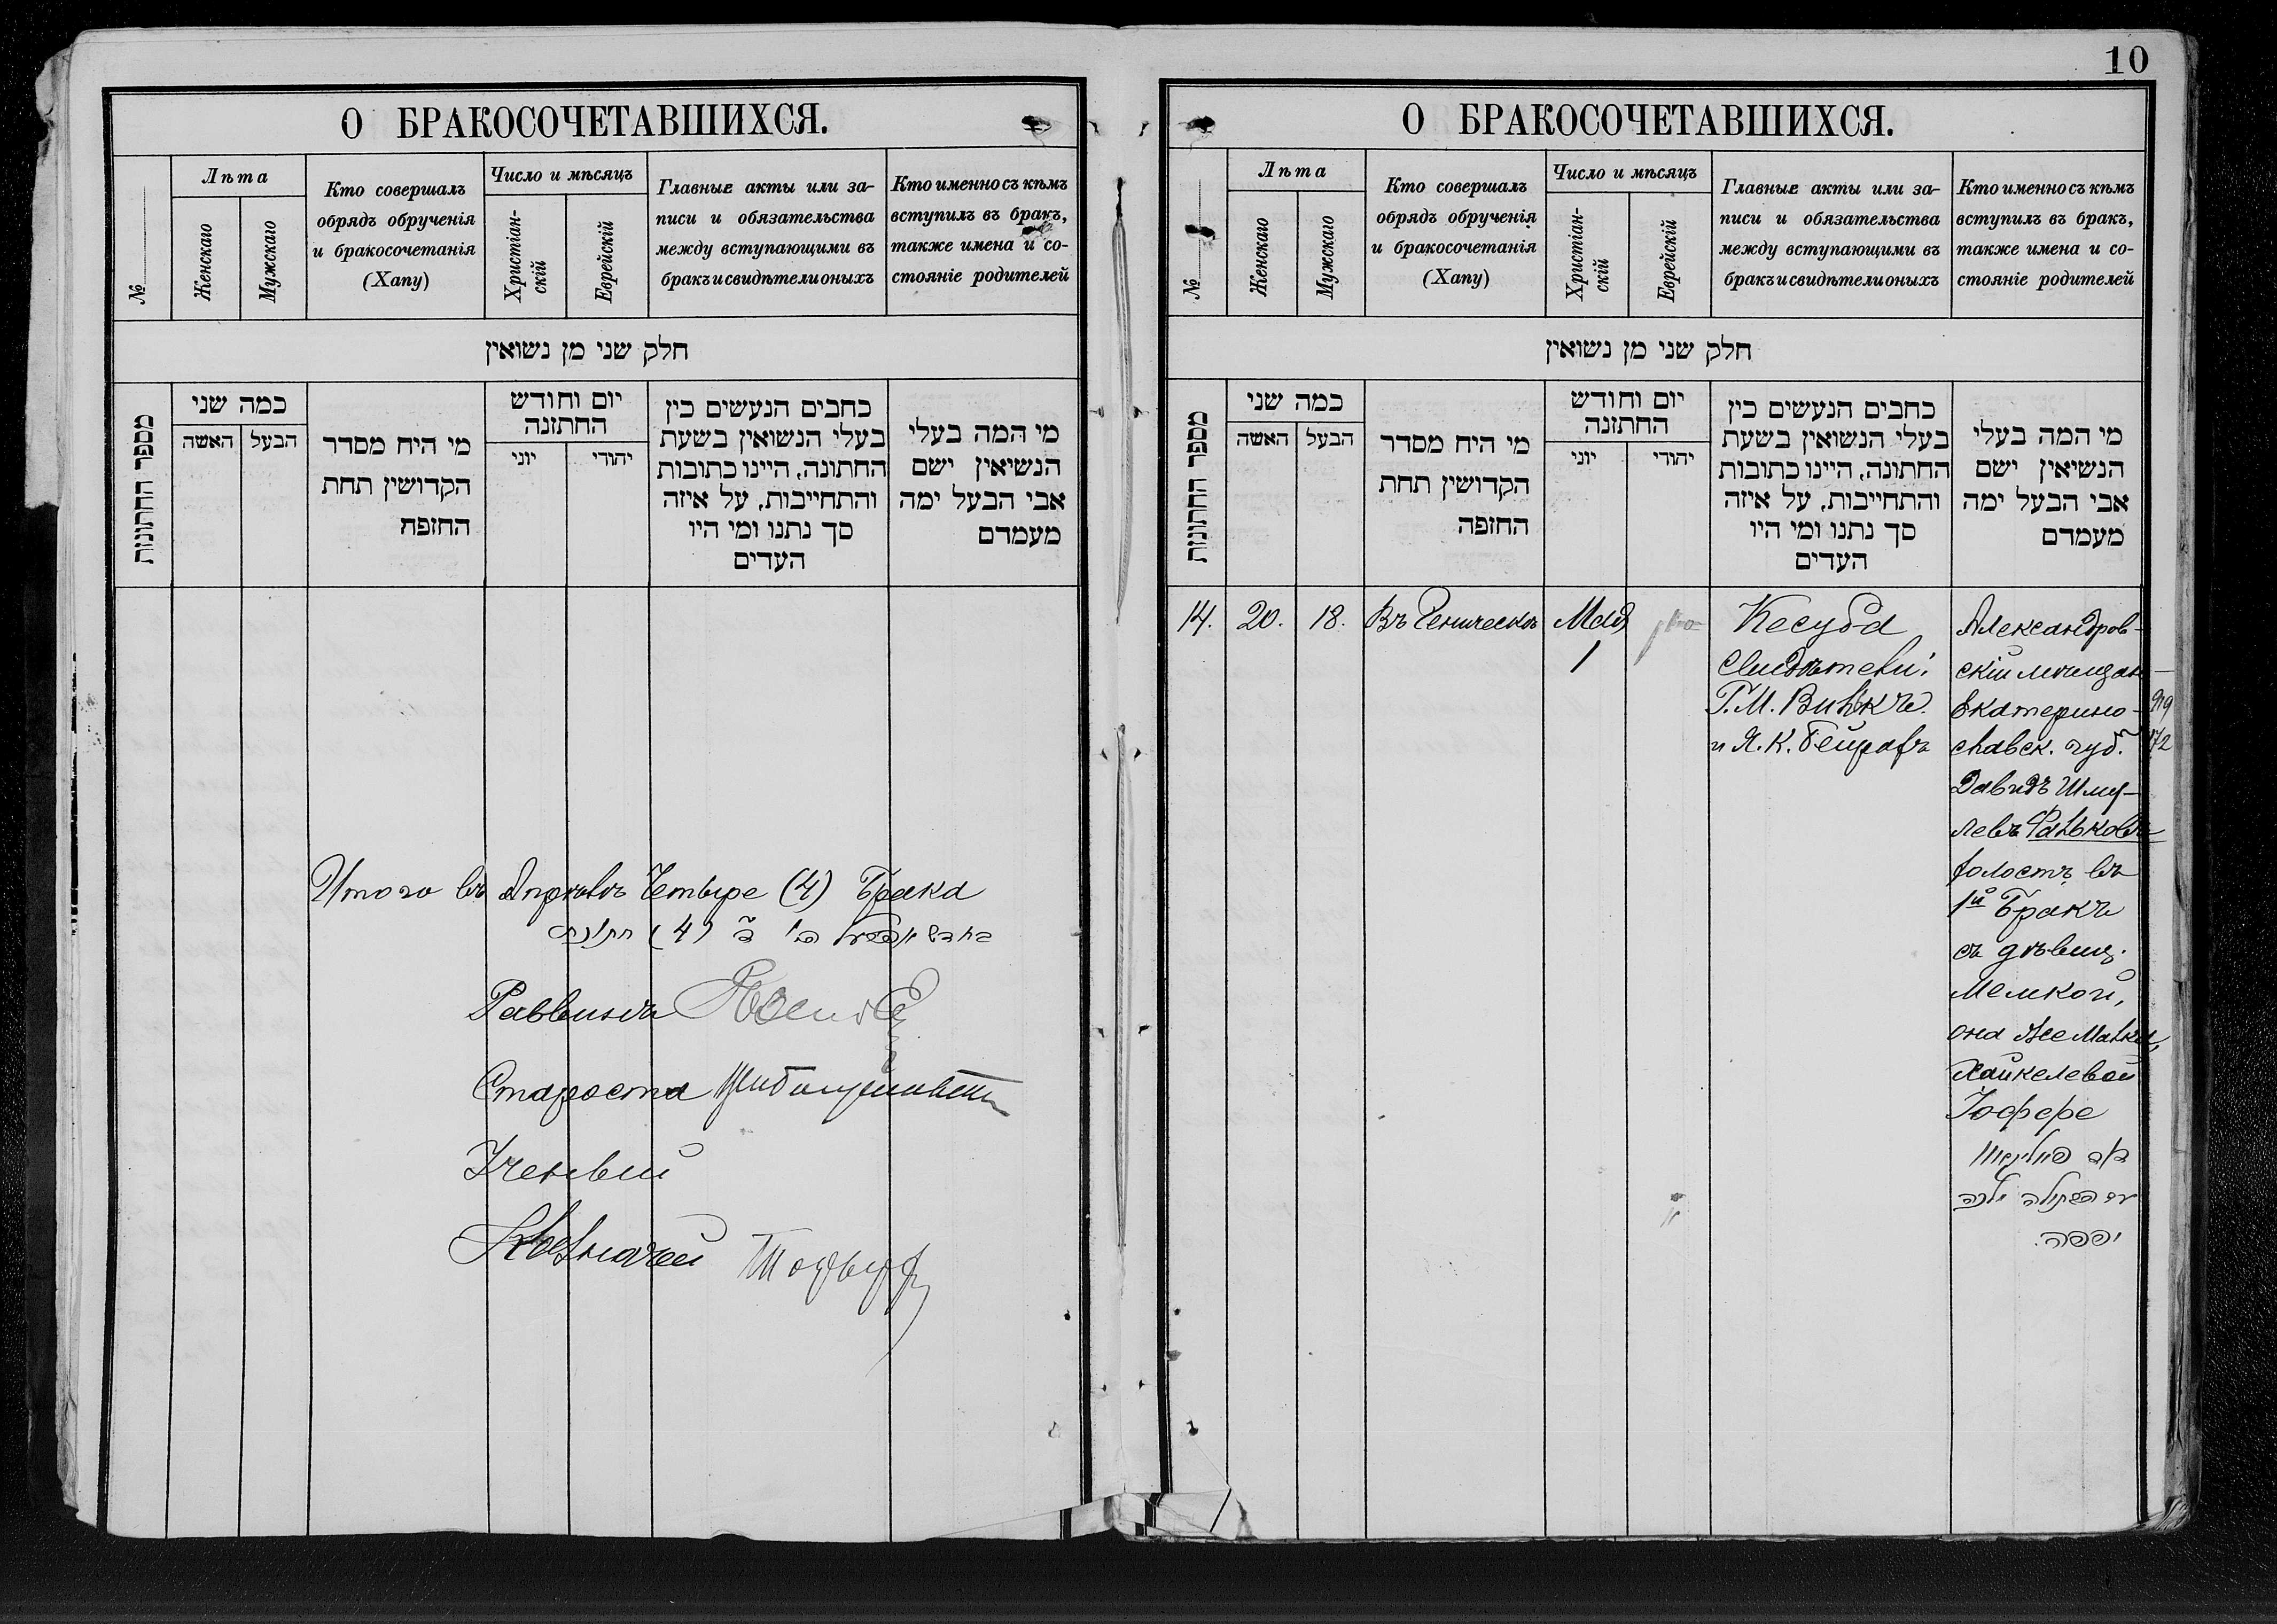 10
О БРАКОСОЧЕТАВШИХСЯ.
№
Лѣта
Женскаго
Мужскаго
Кто совершалъ
обрядъ обрученія
и бракосочетанія
(Хапу)
Число и мѣсяцъ
Христіан-
скій
Еврейскій
Главные акты или за-
писи и обязательства
между вступающими въ
бракъ и свидѣтели оныхъ
Кто именно съ кѣмъ
вступилъ въ бракъ,
также имена и со-
стояніе родителей
חלק שני מן נשואין
מספר החתונות
כמה שני
האשה
הבעל
מי היח מסדר
הקדושין תחת
החופה
יום וחודש
החתונה
יוני
יהודי
כתבים הנעשים בין
בעלי הנשואין בשעת
החתונה, היינו כתובות
והתחייבות, על איזה
סך נתנו ומי היו
העדים
מי המה בעלי
הנשיאין ישם
אבי הבעל ימה
מעמדם
Итого въ Апрѣлѣ Четыре (4) Брака
(4)
Раввинъ
Староста
Ученый
Казначей
О БРАКОСОЧЕТАВШИХСЯ.
№
Лѣта
Женскаго
Мужскаго
Кто совершалъ
обрядъ обрученія
и бракосочетанія
(Хапу)
Число и мѣсяцъ
Христіан-
скій
Еврейскій
Главные акты или за-
писи и обязательства
между вступающими въ
бракъ и свидѣтели оныхъ
Кто именно съ кѣмъ
вступилъ въ бракъ,
также имена и со-
стояніе родителей
חלק שני מן נשואין
מספר החתונות
כמה שני
האשה
הבעל
מי היח מסדר
הקדושין תחת
החופה
יום וחודש
החתונה
יוני
יהודי
כתבים הנעשים בין
בעלי הנשואין בשעת
החתונה, היינו כתובות
והתחייבות, על איזה
סך נתנו ומי היו
העדים
מי המה בעלי
הנשיאין ישם
אבי הבעל ימה
מעמדם
14.
20.
18.
Въ Геническѣ
Мая
1
Кесуба
Свидѣтели:
Г. М.
и Я. К.
Александров-
скій мѣщан-
Екатерино-
славск. губ.
Давидъ Шму-
левъ Фальковъ
холостъ въ
1й Бракъ
съ дѣвиц.
Мелкой,
она же Малка,
Хайкелевой
Іоффе